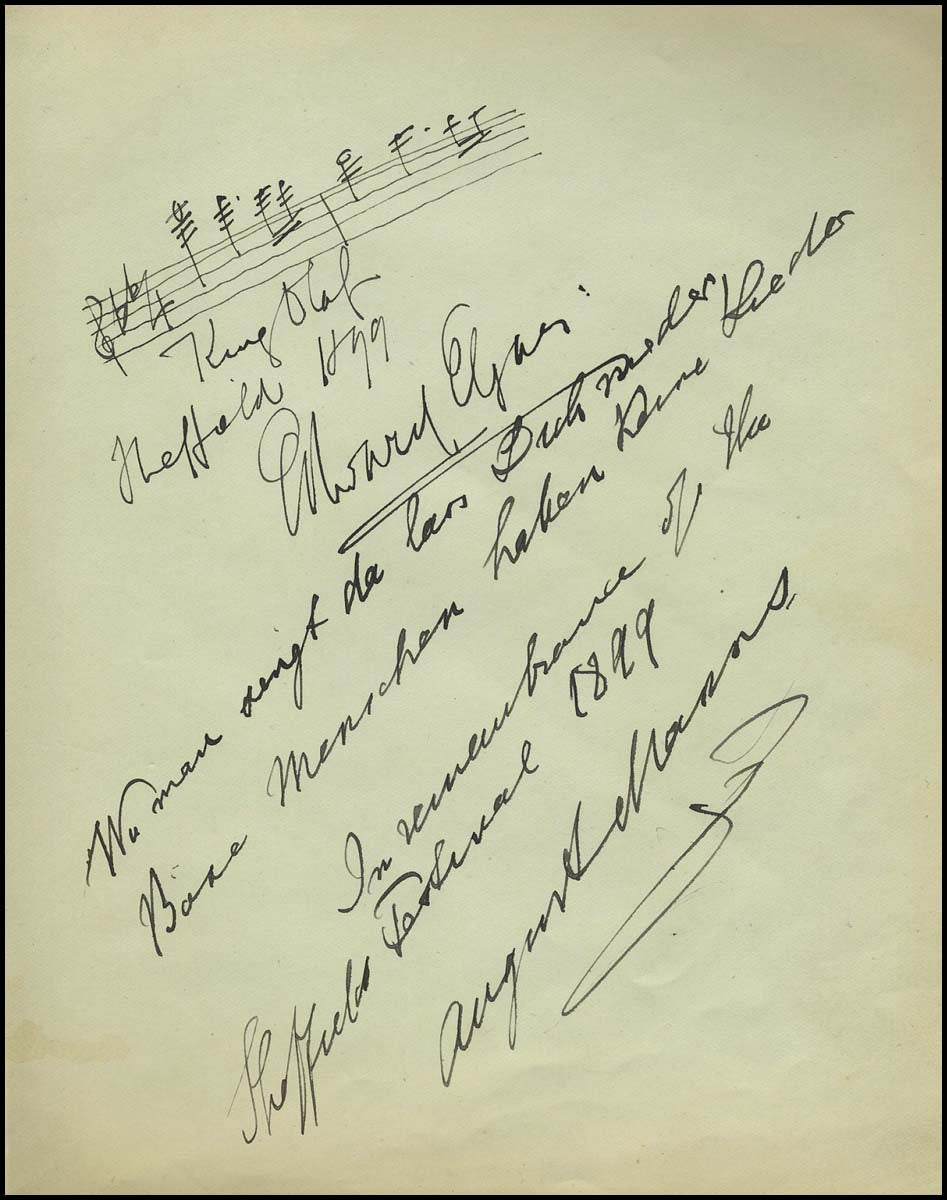 King Olaf
Sheffield 1899
Edward Elgar:
Wo man singt da lass Dich nieder
Böse Menschen haben keine Lieder
In remembrance of the
Sheffield Festival 1899
August Manns